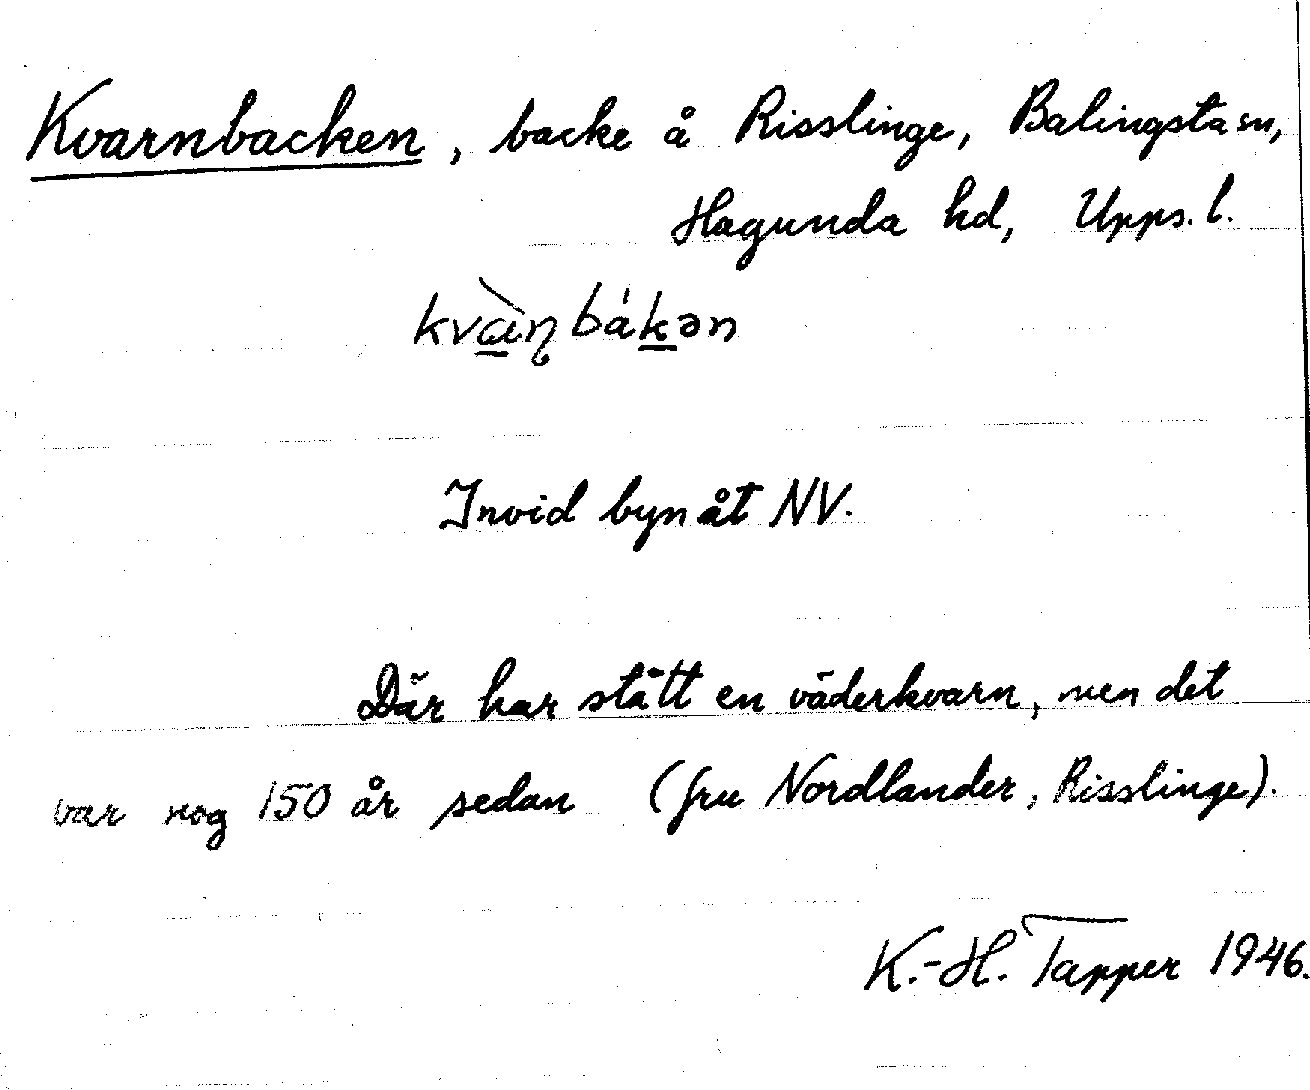 Kvarnbacken, backe å Risslinge, Balingsta sn,
Hagunda hd, Upps. l.
kvàɳbákən
Invid byn åt NV.
Där har stått en väderkvarn, men det
var nog 150 år sedan (fru Nordlander, Risslinge).
K.-H. Tapper 1946.